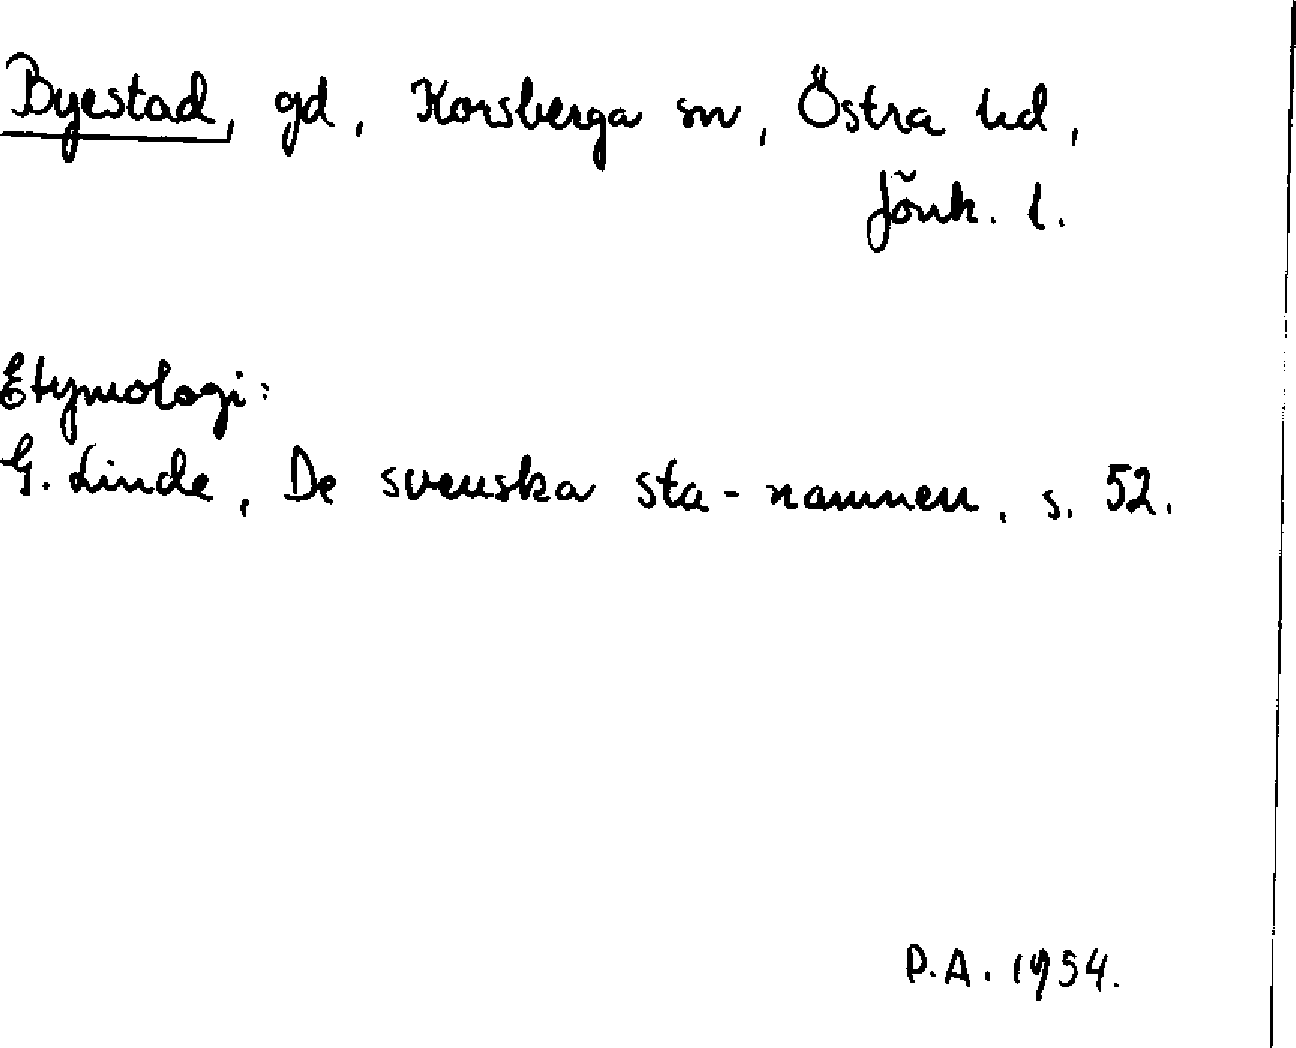 Byestad, gd, Korsberga sn, Östra hd,
Jönk. l.
Etymologi:
G. Linde, De svenska sta-namnen, s. 52.
P.A. 1954.